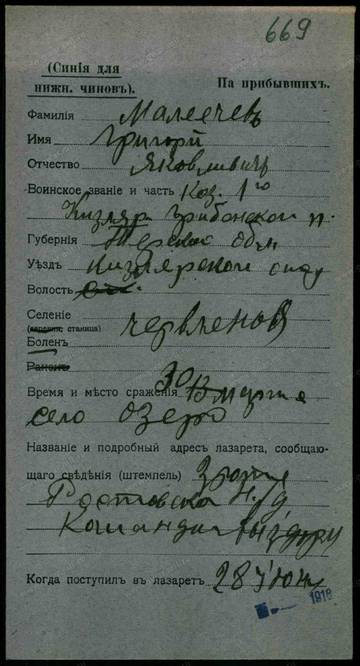 669
(Синія для
нижн. чиновъ).
На прибывшихъ.
Фамилія Малеечевъ
Имя Григорій
Отчество Яковлевичъ
Воинское званіе и часть Каз. 1го
Кизляр. Гребенской п.
Губернія Терской Обл
Уѣздъ Кизлярской
Волость
Селеніе
(деревня, станица) Червленой
Боленъ
Раненъ
Время и мѣсто сраженія 30 марта
село Озеро
Названіе и подробный адресъ лазарета, сообщаю-
щаго свѣдѣнія (штемпель) 3 роты
Ростовска
Команды выздор
Когда поступилъ въ лазаретъ 28 Іюн
1916